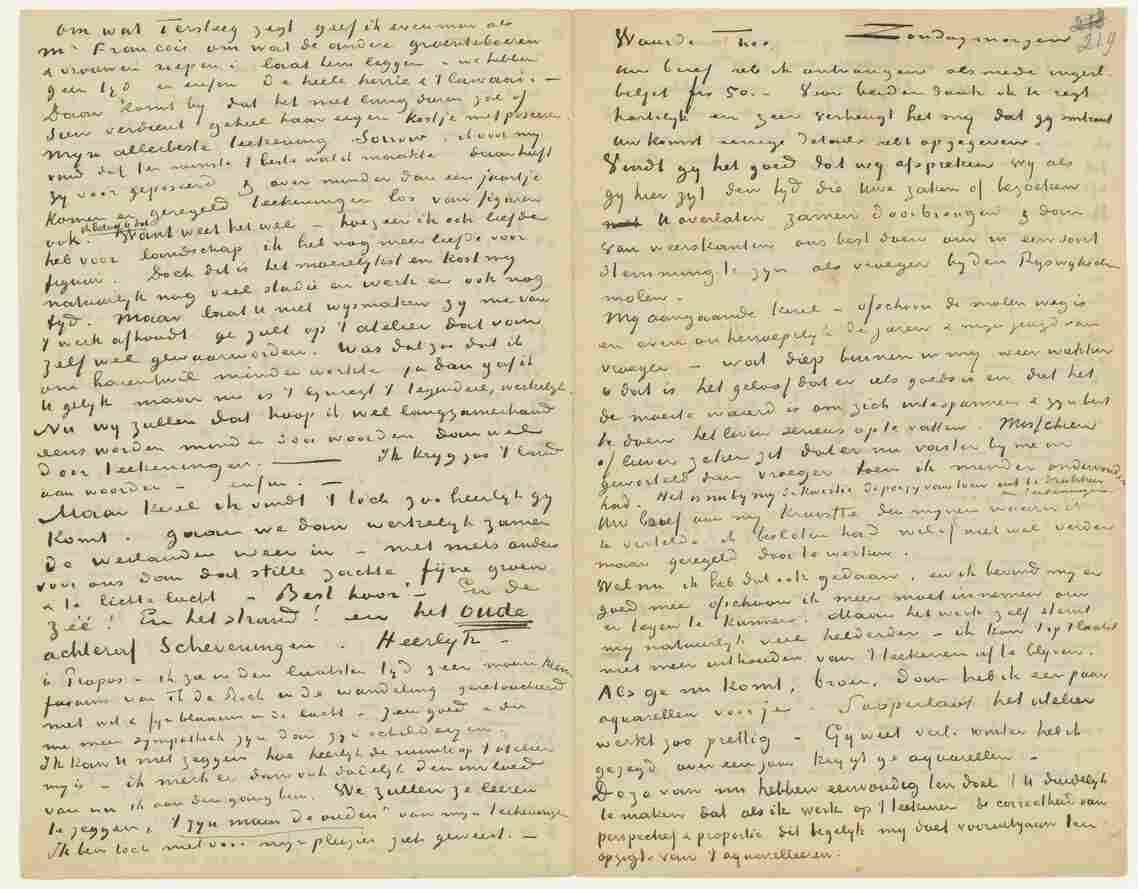 om wat Tersteeg zegt geef ik evenmin als
Mr François om wat de andere groenteboeren
& vrouwen riepen: laat hem leggen – we hebben
geen tyd en enfin de heele herrie & 't lawaai. –
Daar komt by dat het niet lang duren zal of
Sien verdient geheel haar eigen kostje met poseeren.
Myn allerbeste teekening Sorrow, ik voor my
vind dat ten minste 't beste wat ik maakte daar heeft
zy voor geposeerd & over minder dan een jaartje
komen er geregeld teekeningen los van figuren
ook. ik beloof ij dat Want weet het wel – hoezeer ik ook liefde
heb voor landschap ik heb nog meer liefde voor
figuur. Doch dit is het moeielykst en kost my
natuurlyk nog veel studie en werk en ook nog
tyd. Maar laat U niet wysmaken zy me van
't werk afhoudt ge zult op 't atelier dat van
zelf wel gewaarworden. Was dat zoo dat ik
om harentwil minder werkte ja dan gaf ik
U gelyk maar nu is 't eenmaal 't tegendeel, werkelyk.
Nu wy zullen dat hoop ik wel langzamerhand
eens worden minder door woorden dan wel
door teekeningen. — Ik kryg zoo 't land
aan woorden – enfin. –
Maar kerel ik vindt 't toch zoo heerlyk gy
komt. gaan we dan werkelyk zamen
de weilanden weer in – met niets anders
voor ons dan dat stille zachte fyne groen
& te lichte lucht – Best hoor! – En de
zéé! En het strand! en het oude
achteraf Scheveningen. Heerlyk –
à Propos – ik zag in den laatsten tyd zeer mooie kleine
fusains van Th de Bock in de wandeling geretoucheerd
met wit & fyn blaauw in de lucht – zeer goed & die
me meer sympathiek zyn dan zyn schilderyen.
Ik kan U niet zeggen hoe heerlyk de ruimte op 't atelier
my is – ik merk er dan ook dadelyk den invloed
van nu ik aan den gang ben. We zullen ze leeren
te zeggen, 't zyn maar de ouden" van myn teekeningen
Ik ben toch niet voor myn pleizier ziek geweest. –
218
219
Waarde Theo Zondagmorgen
Uw brief heb ik ontvangen alsmede ingesl.
biljet frs 50. – Voor beiden dank ik U regt
hartelyk en zeer verheugt het my dat gy omtrent
Uw komst eenige details hebt opgegeven.
Vindt gy het goed dat wy afspreken wy als
gy hier zyt den tyd die Uwe zaken of bezoeken
U overlaten zamen doorbrengen & dan
van weerskanten ons best doen om in een soort
stemming te zyn als vroeger by den Ryswykschen
molen.
My aangaande kerel – ofschoon de molen weg is
en even onherroepelyk de jaren & myn jeugd van
vroeger – wat diep binnen in my weer wakker
is dat is het geloof dat er iets goeds is en dat het
de moeite waard is om zich intespannen & zyn best
te doen het leven serieus op te vatten. Misschien
of liever zeker zit dat er nu vaster by me in
geworteld dan vroeger toen ik minder ondervonden
had. Het is nu by my de kwestie de poezy van toen uit te drukken
in teekeningen.
Uw brief aan my kruistte den mynen waarin ik
U vertelde ik besloten had wel of niet wel verder
maar geregeld door te werken.
Wel nu ik heb dat ook gedaan, en ik bevind my er
goed mee ofschoon ik meer moet innemen om
er tegen te kunnen. Maar het werk zelf stemt
my natuurlyk veel helderder – ik kan 't op 't laatst
niet meer uithouden van 't teekenen af te blyven.
Als ge nu komt, broer, dan heb ik een paar
aquarellen voor je. Sapperloot het atelier
werkt zoo prettig – Gy weet verl. winter heb ik
gezegd over een jaar krygt ge aquarellen –
Deze van nu hebben eenvoudig ten doel U duidelyk
te maken dat als ik werk op 't teekenen de correctheid van
perspectief & proportie dit tegelyk my doet vooruitgaan ten
opzigte van 't aquarelleeren.